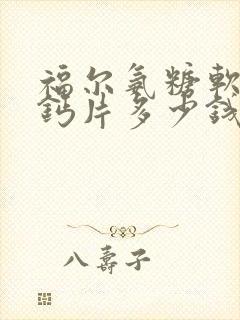 福尔氨糖軟
鈣片多少钱
八壽子